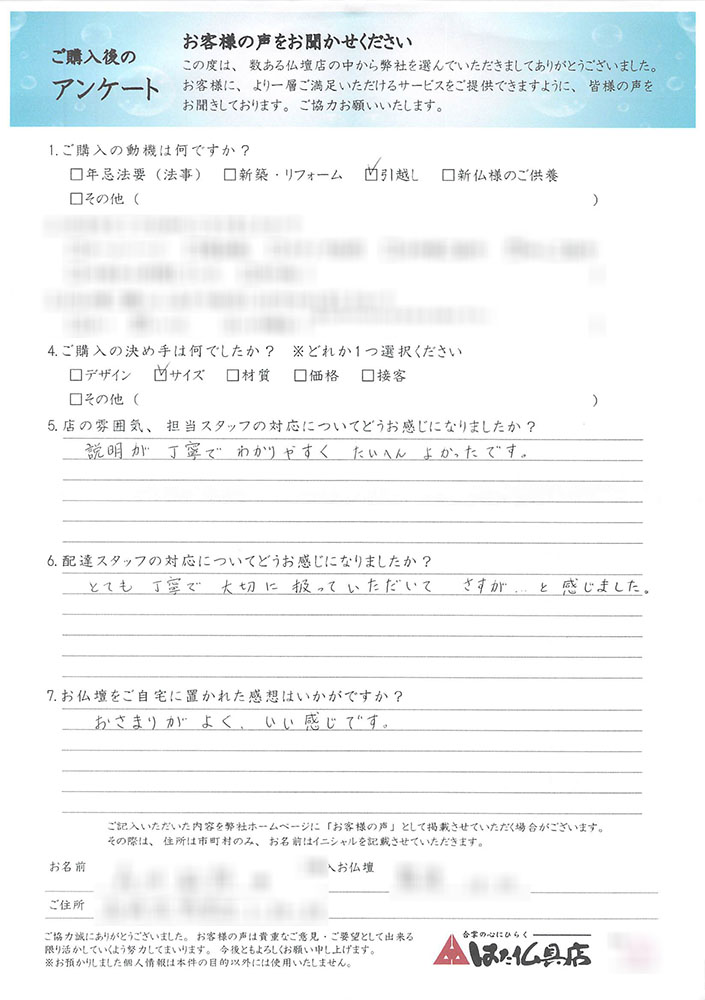 お客様の声をお聞かせください
ご購入後の
アンケート
この度は、数ある仏壇店の中から弊社を選んでいただきましてありがとうございました。
お客様に、より一層ご満足いただけるサービスをご提供できますように、皆様の声を
お聞きしております。ご協力お願いいたします。
1.ご購入の動機は何ですか？
□年忌法要（法事） □新築・リフォーム ☑引越し □新仏様のご供養
□その他（ ）
4.ご購入の決め手は何でしたか？ ※どれか1つ選択ください
□デザイン ☑サイズ □材質 □価格 □接客
□その他（ ）
5.店の雰囲気、担当スタッフの対応についてどうお感じになりましたか？
説明が 丁寧で わかりやすく たいへん よかったです。
6.配達スタッフの対応についてどうお感じになりましたか？
とても 丁寧で 大切に 扱っていただいて さすが…と 感じました。
7.お仏壇をご自宅に置かれた感想はいかがですか？
おさまりが よく、いい感じです。
ご記入いただいた内容を弊社ホームページに「お客様の声」として掲載させていただく場合がございます。
その際は、住所は市町村のみ、お名前はイニシャルを記載させていただきます。
お名前 お仏壇
ご住所
ご協力誠にありがとうございました。お客様の声は貴重なご意見・ご要望として出来る
限り活かしていくよう努力してまいります。今後ともよろしくお願い申し上げます。
※お預かりしました個人情報は本件の目的以外には使用いたしません。
合掌の心にひらく
はた仏具店